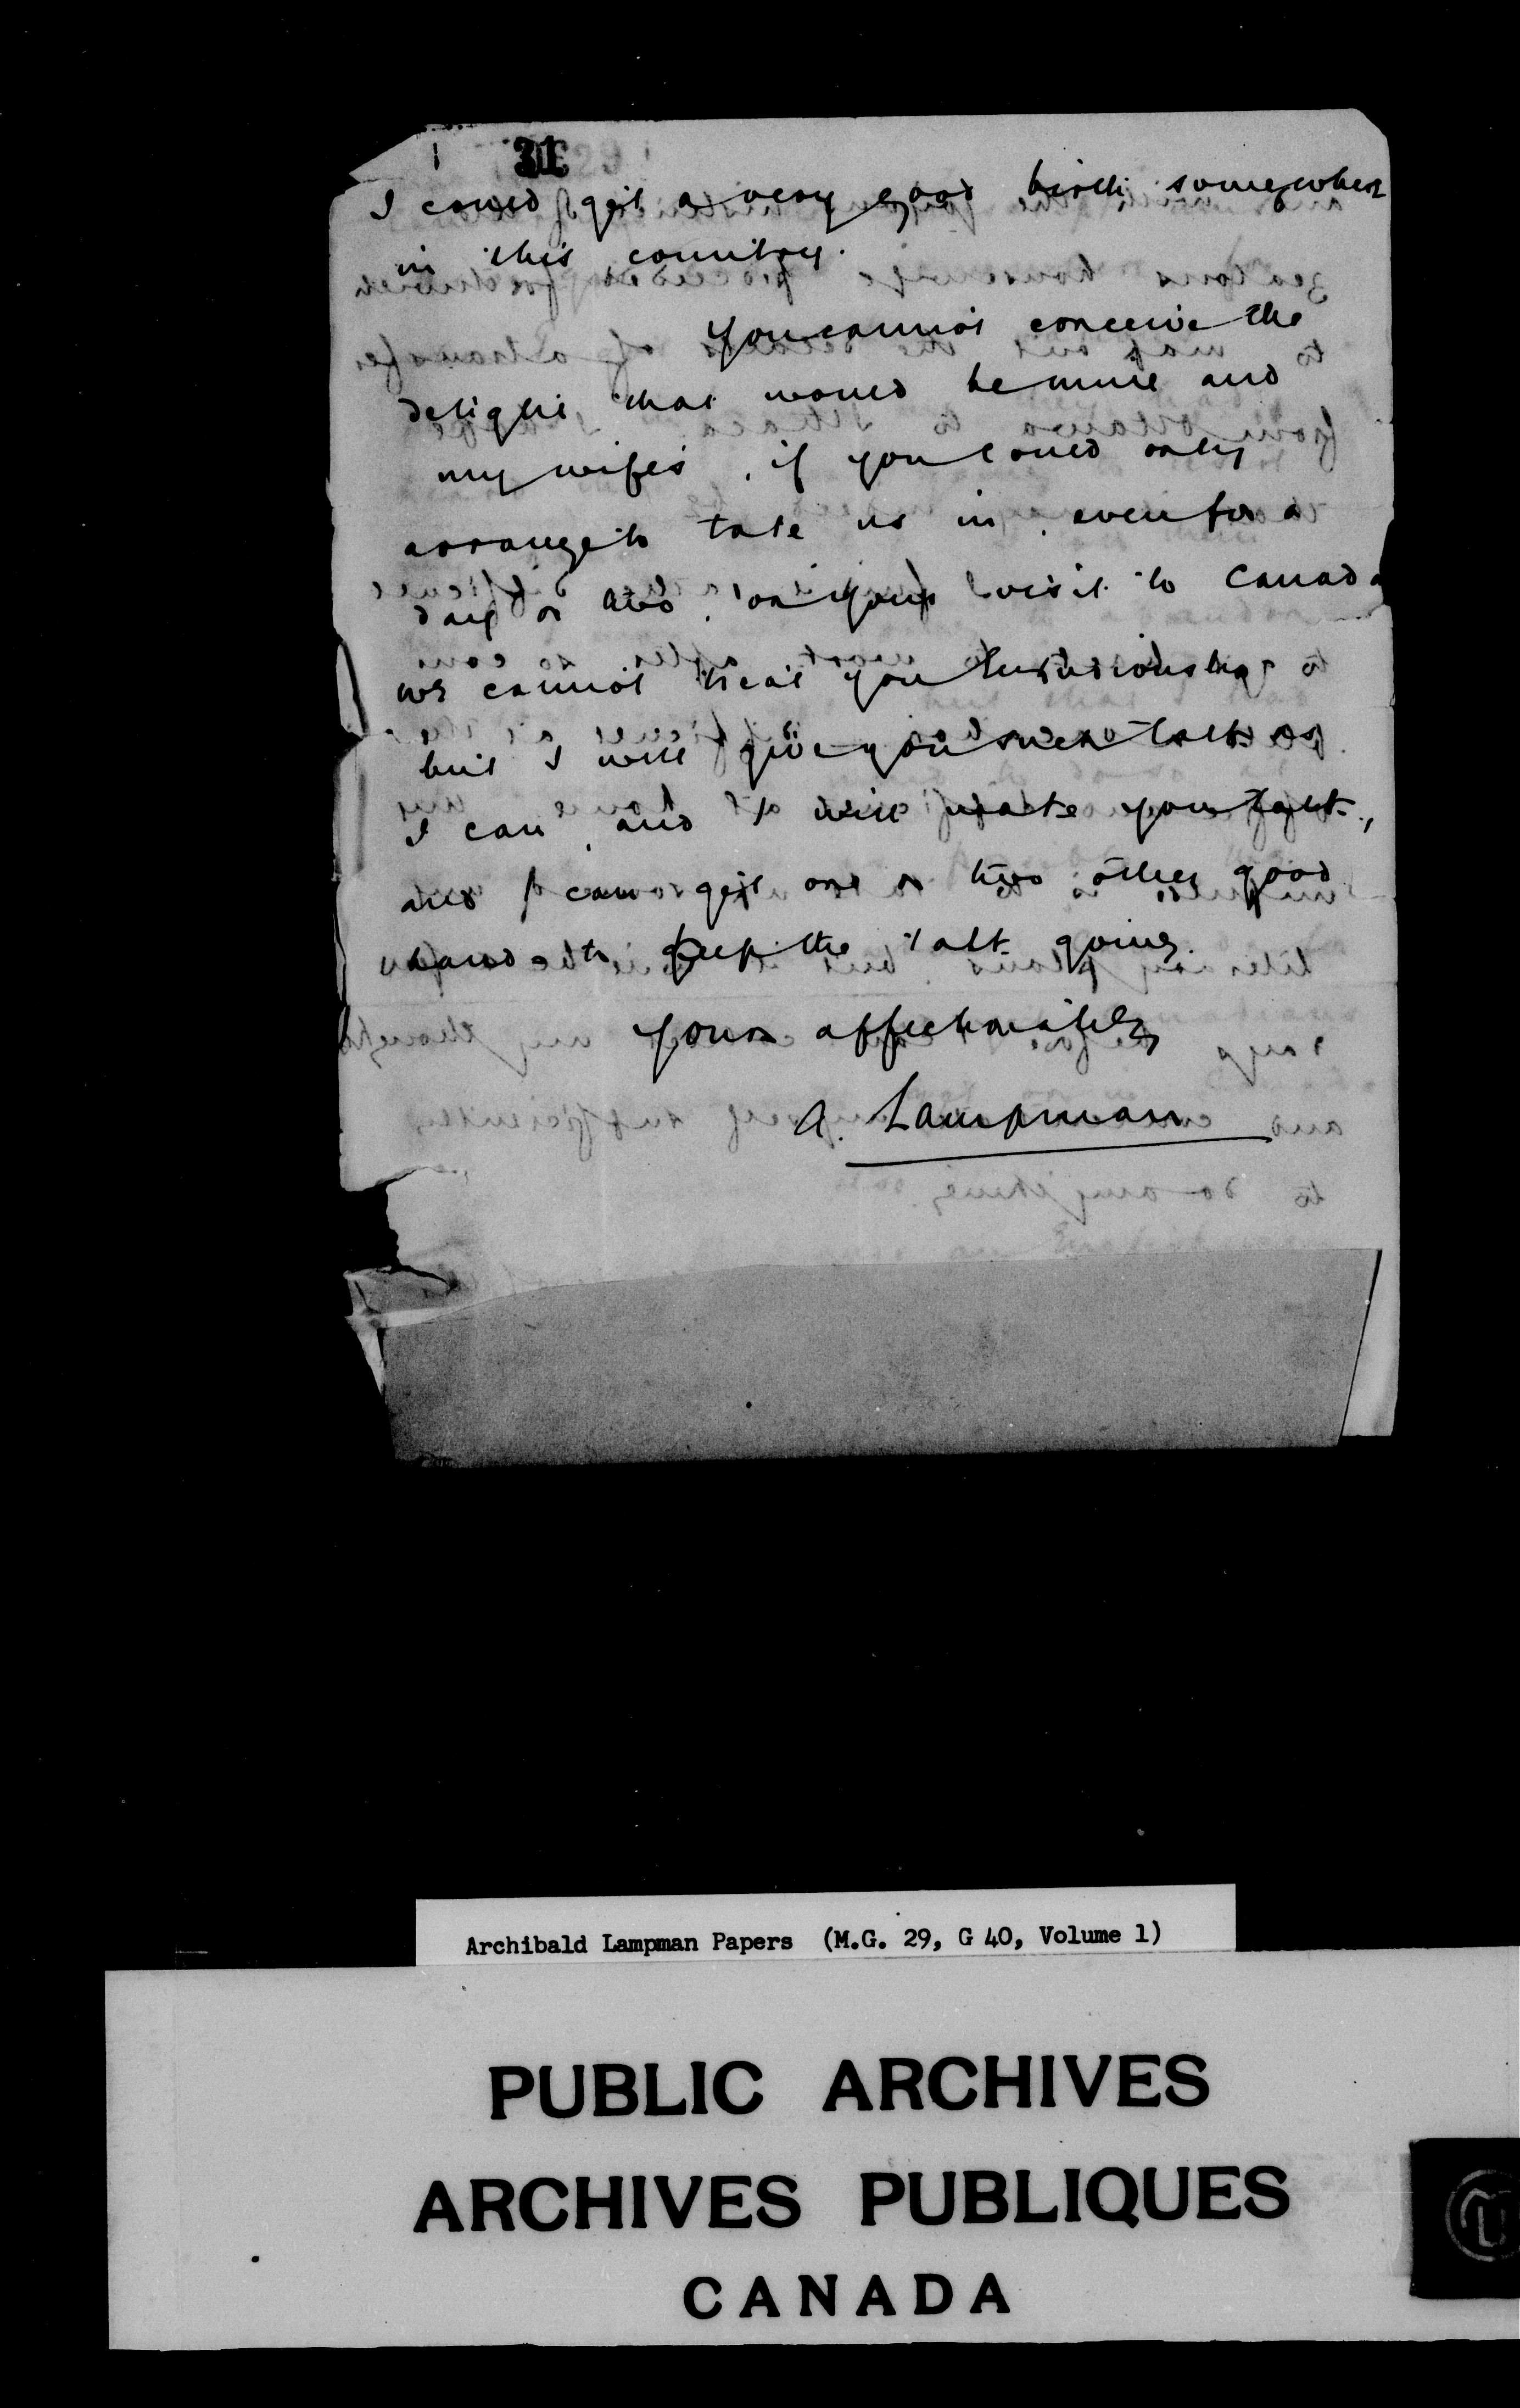 31
I could get a very good birth somewhere
in this country.
You cannot conceive the
delight that would be mine and
my wife's, if you could only
arrange to take us in, even for a
day or two, on your visit to Canada
we cannot treat you luxuriously
but I will give you such talk as
I can, and I will make you talk,
and I can get one or two other good
hands to keep the talk going.
Yours affectionately
A. Lampman
Archibald Lampman Papers (M.G. 29, G 40, Volume 1)
PUBLIC ARCHIVES
ARCHIVES PUBLIQUES
CANADA